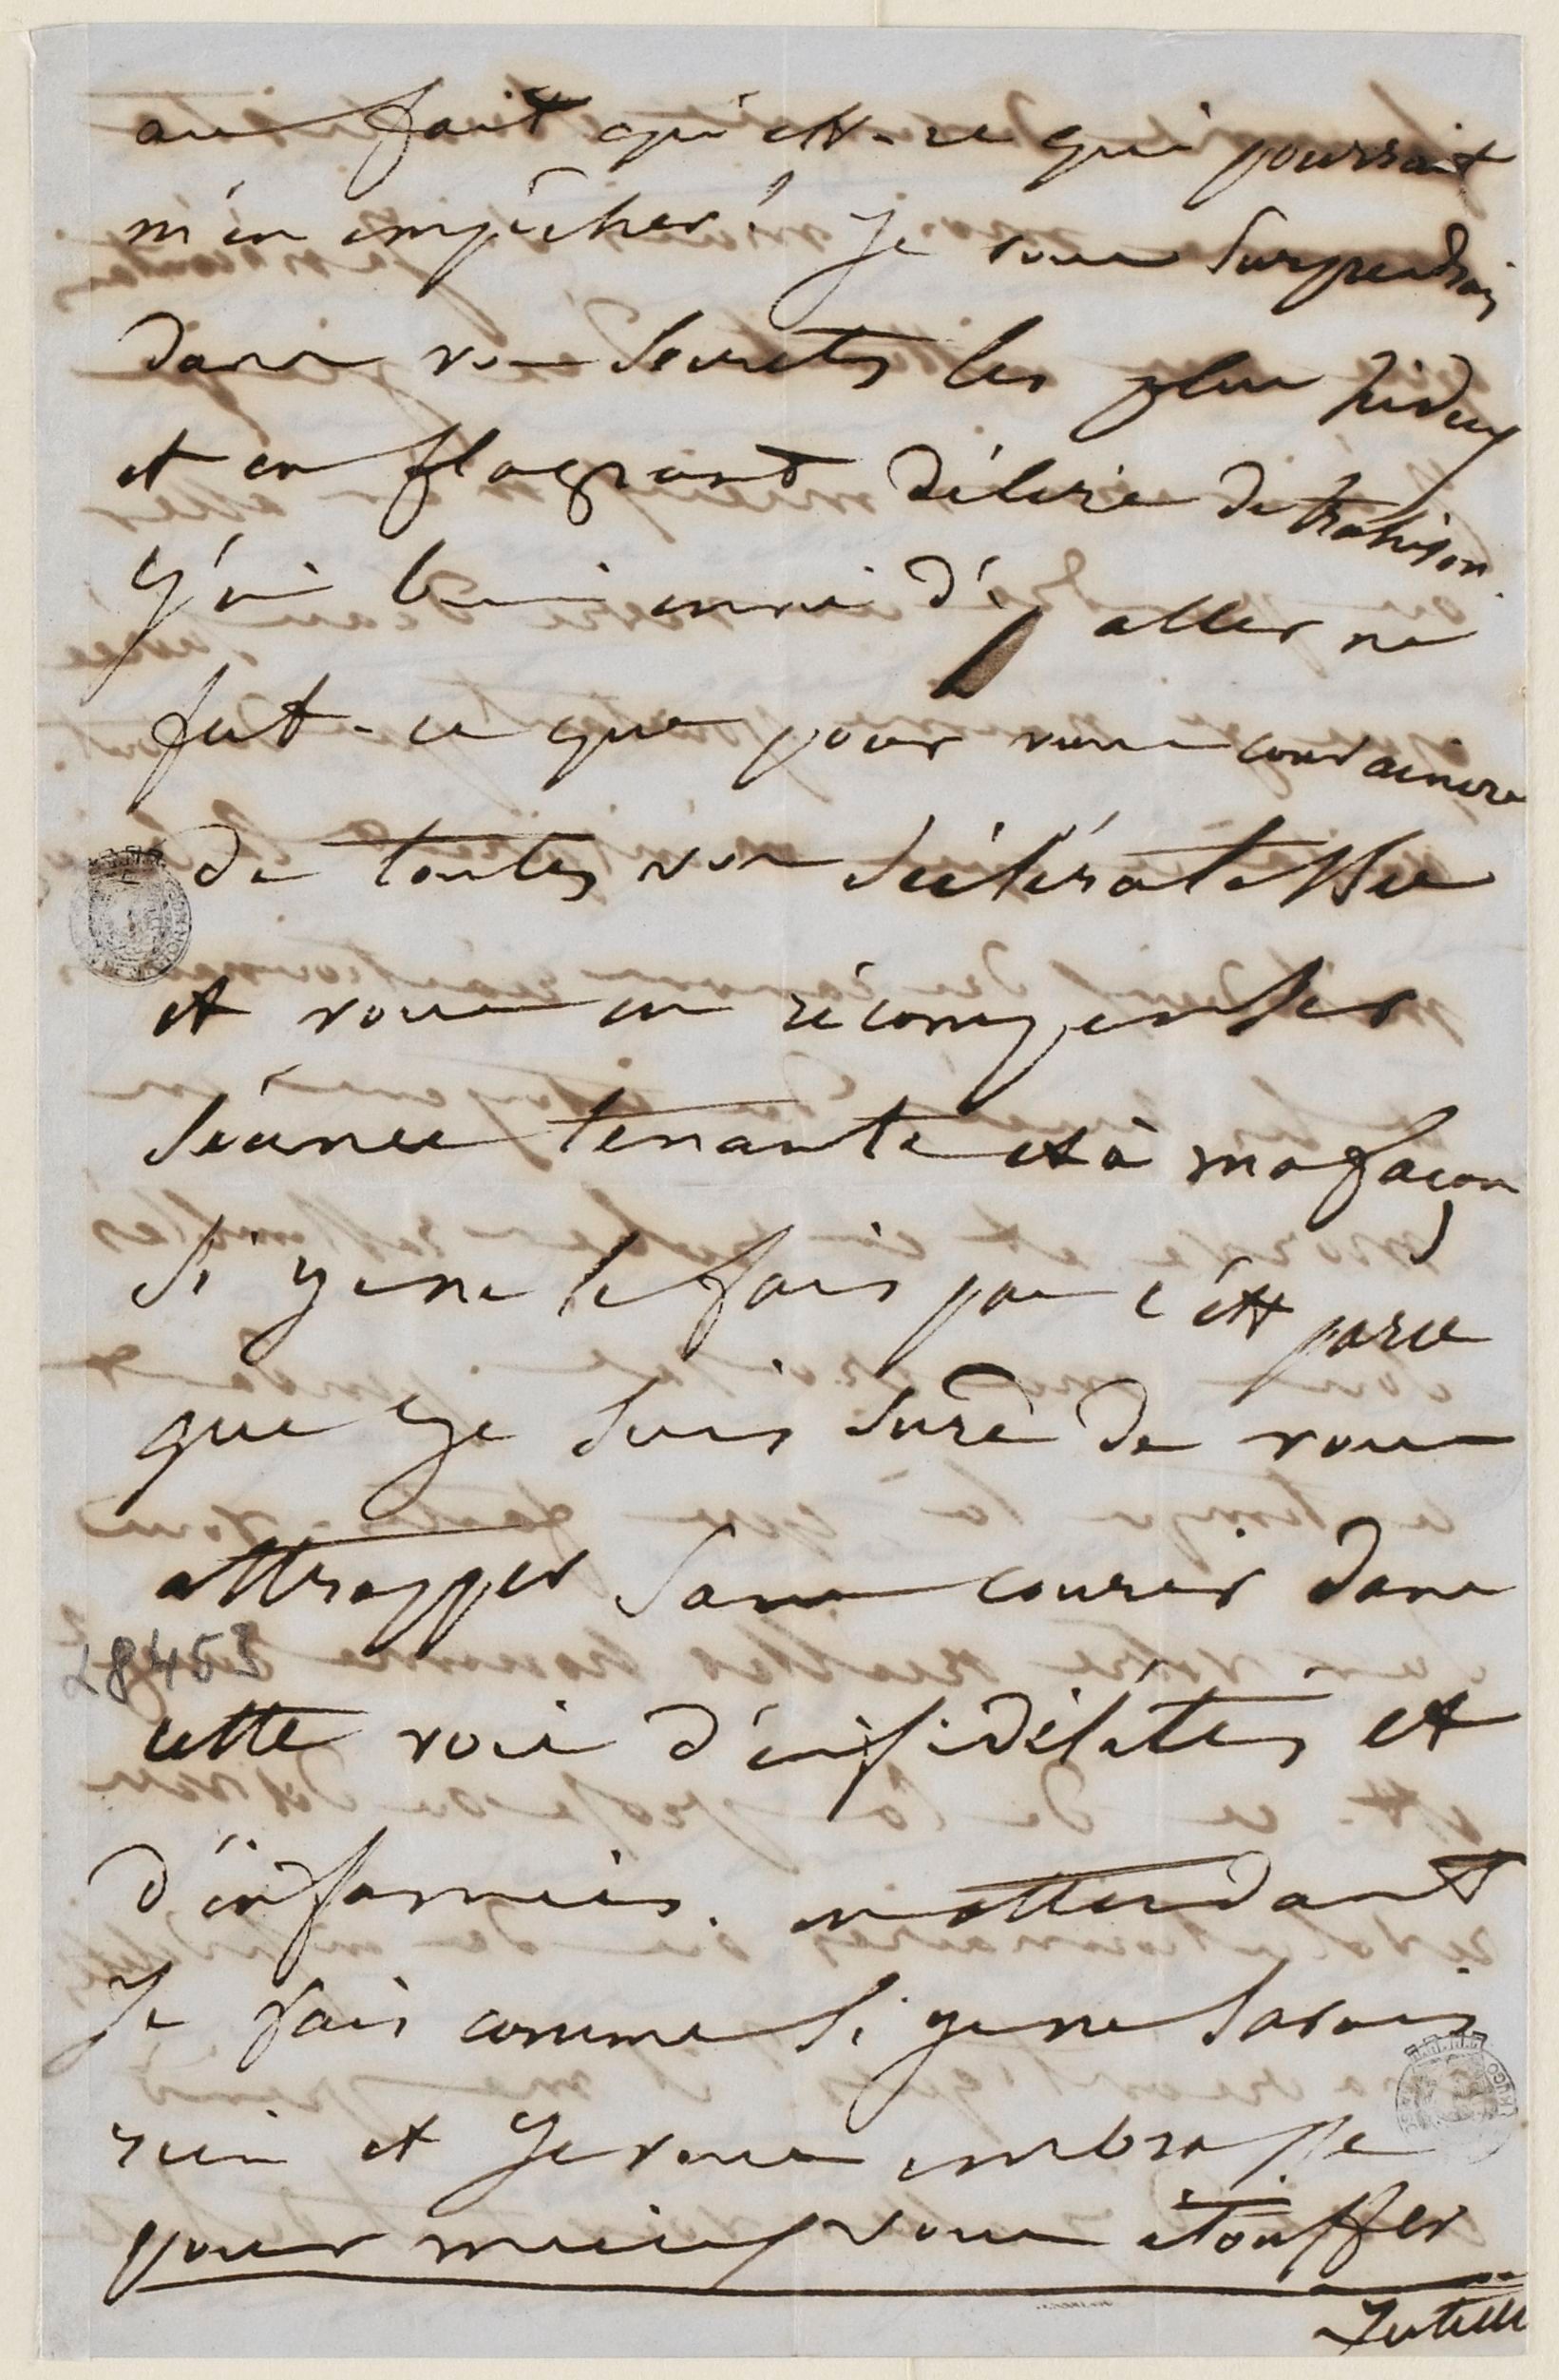 au fait qu'est-ce qui pourrait
m'en empêcher ? Je vous surprendrais
dans vos secrets les plus hideux
et en flagrant délire de trahison.
J'ai bien envie d'y aller ne
fut-ce que pour vous convaincre
de toutes vos scélératesse
et vous en récompenser
séance tenante et à ma façon
si je ne le fais pas c'est parce
que je suis sûre de vous
attrapper sans courir dans
28453
cette voie d'infidélités et
d'infamies. en attendant
Je fais comme si je ne savais
rien et je vous embrasse
pour mieux vous étouffer
Juliette